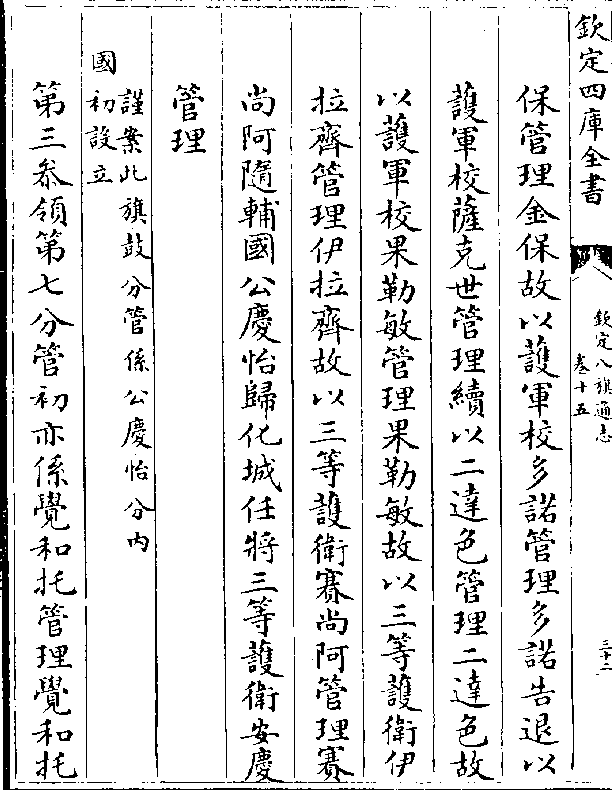 欽定四庫全書
欽定八旗通志
卷十五
三十二
保管理金保故以護軍校多諾管理多諾告退以
護軍校薩克世管理續以二達色管理二達色故
以護軍校果勒敏管理果勒敏故以三等護衛伊
拉齊管理伊拉齊故以三等護衛賽尚阿管理賽
尚阿隨輔國公慶怡歸化城任將三等護衛安慶
管理
謹案此旗鼓分管係公慶怡分內
國初設立
第三叅領第七分管初亦係覺和托管理覺和托